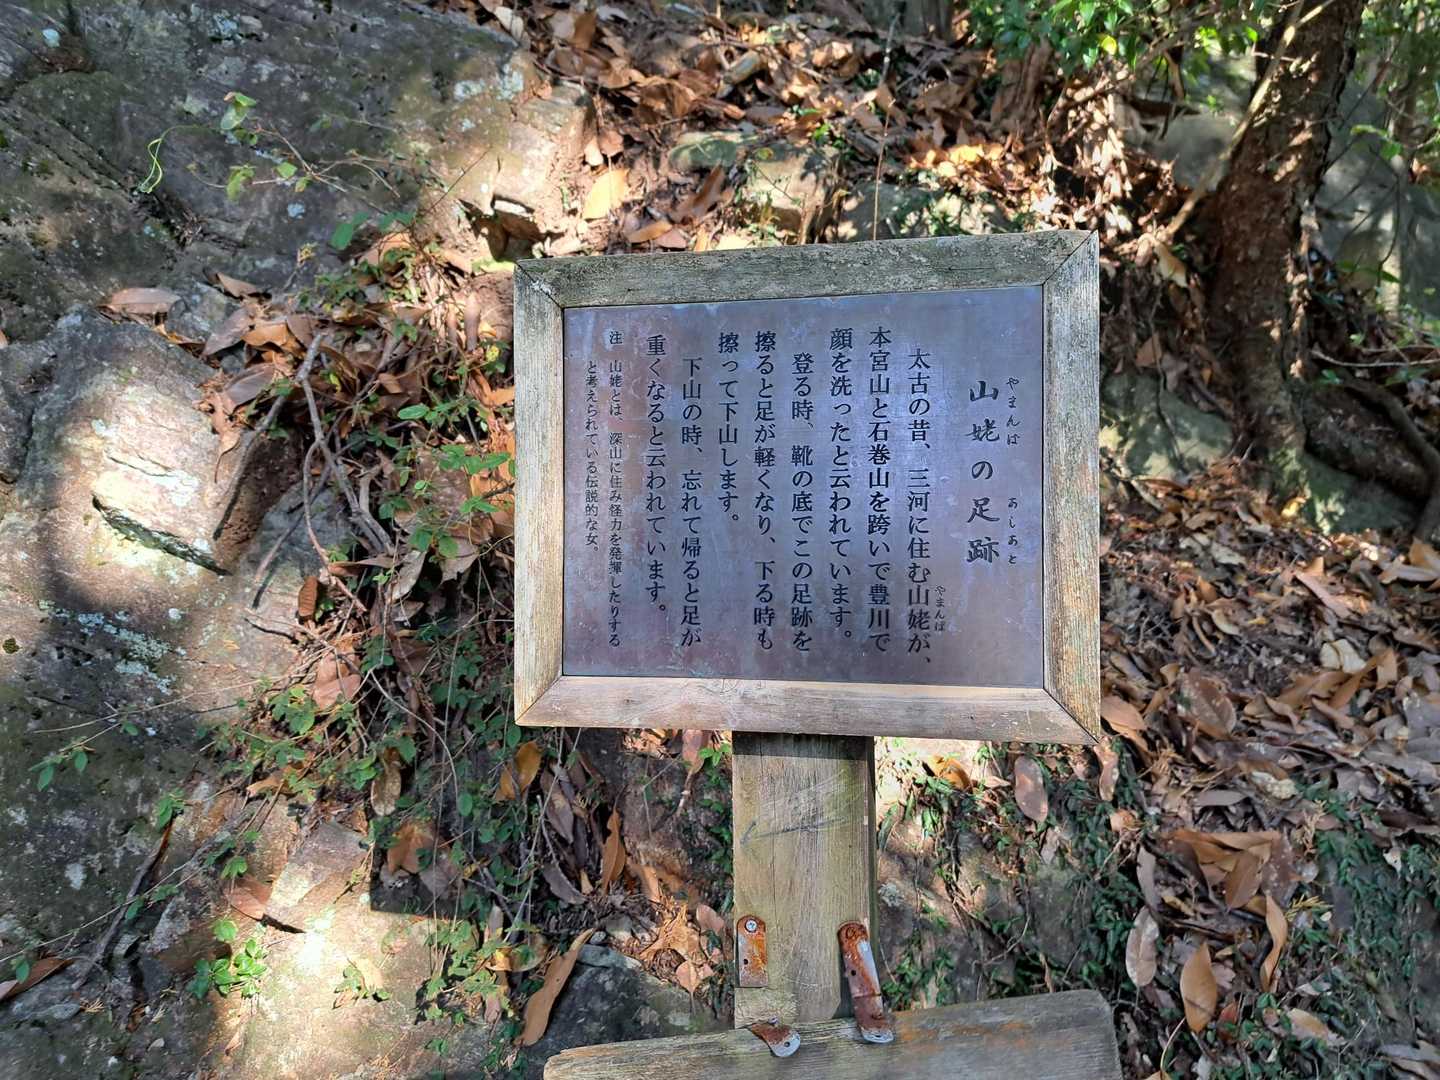 山姥の足跡
やまんば あしあと
太古の昔、三河に住む山姥が、
やまんば
本宮山と石巻山を跨いで豊川で
顔を洗ったと云われています。
登る時、靴の底でこの足跡を
擦ると足が軽くなり、下る時も
擦って下山します。
下山の時、忘れて帰ると足が
重くなると云われています。
注 山姥とは、深山に住み怪力を発揮したりする
と考えられている伝説的な女。